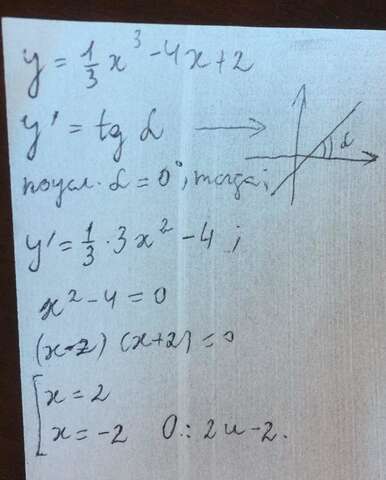 y = 1/3 x³ - 4x + 2
y' = tg α →
α
по усл. α = 0°, тогда;
y' = 1/3 · 3x² - 4 ;
x² - 4 = 0
(x-2) (x+2) = 0
[ x = 2
x = -2 О.: 2 и -2.